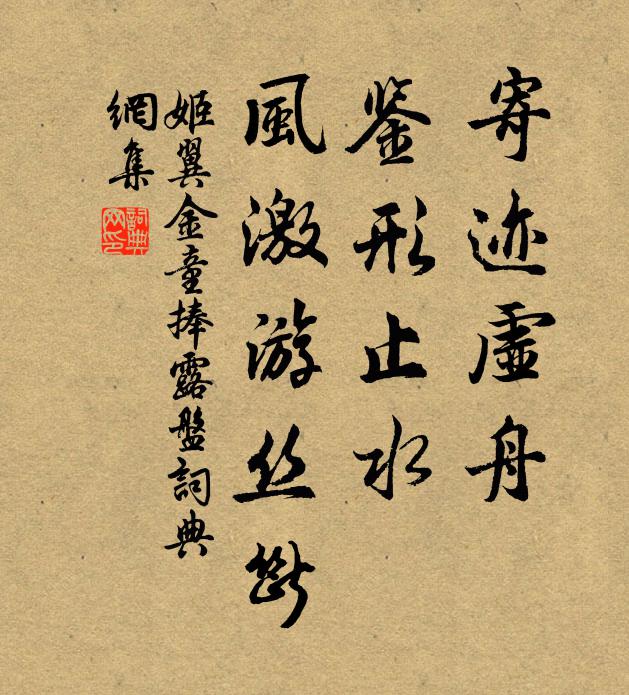 寄迹虚舟
鉴形止水
風激游丝断
姬翼金童捧露盤詞典
網集
詞典
网印